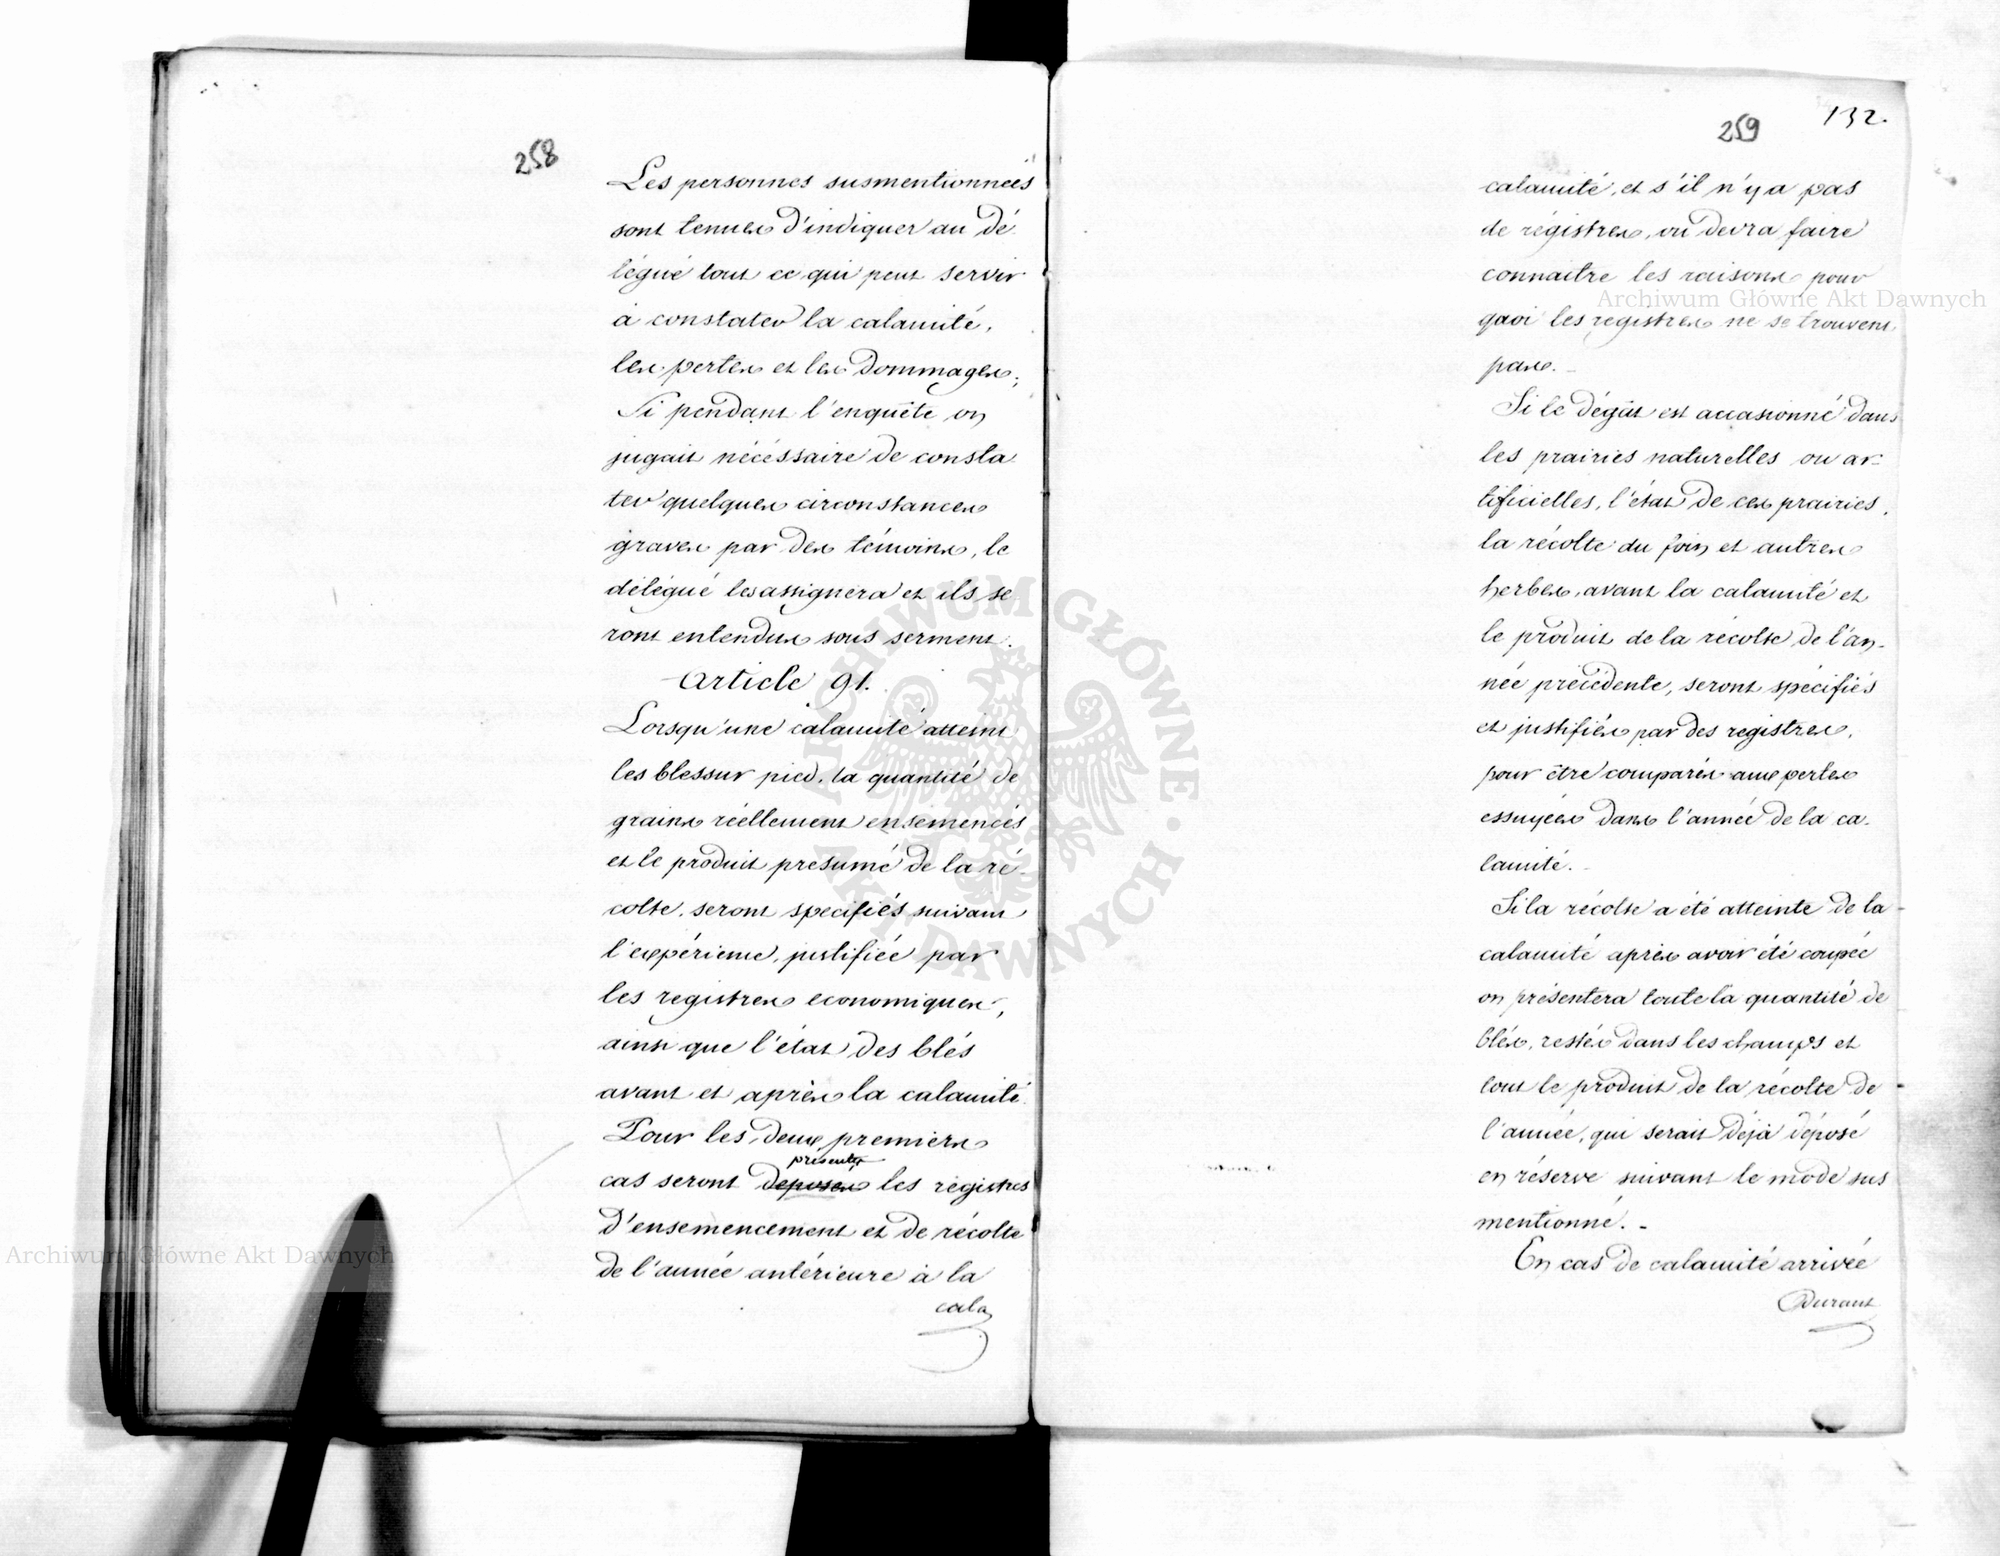 258
Les personnes susmentionnées
sont tenues d'indiquer au dé
légué tout ce qui peut servir
à constater la calamité,
les pertes et les dommages;
Si pendant l'enquête on
jugait nécéssaire de consta
ter quelques circonstances
graves par des témoins, le
délégué les assignera et ils se
ront entendus sous serment.
Article 91.
Lorsqu'une calamité atteint
les bles sur pied, la quantité de
grains réellement ensemencés
et le produit presumé de la ré
colte, seront specifiés suivant
l'expérience, justifiée par
les registres economiques,
ainsi que l'état des blés
avant et après la calamité.
Pour les deux premiers
présentés
cas seront deposes les régistres
d'ensemencement et de récolte
de l'année antérieure à la
cala
259
132.
calamité, et s'il n'y a pas
de régistres, on devra faire
connaitre les raisons pour
quoi les registres ne se trouvent
pas.
Si le dégât est accasionné dans
les prairies naturelles ou ar-
tificielles, l'état de ces prairies,
la récolte du foin et autres
herbes, avant la calamité et
le produit de la récolte de l'an-
née précédente, seront spécifiés
et justifiés par des registres,
pour être comparés aux pertes
essuyées dans l'année de la ca-
lamité.
Si la récolte a été atteinte de la
calamité après avoir été coupée
on présentera toute la quantité de
blés, restés dans les champs et
tout le produit de la récolte de
l'année, qui serait déjà déposé
en réserve suivant le mode sus
mentionné. -
En cas de calamité arrivée
Durant
Archiwum Główne Akt Dawnych
Archiwum Główne Akt Dawnych
ARCHIWUM GŁÓWNE · AKT DAWNYCH ·